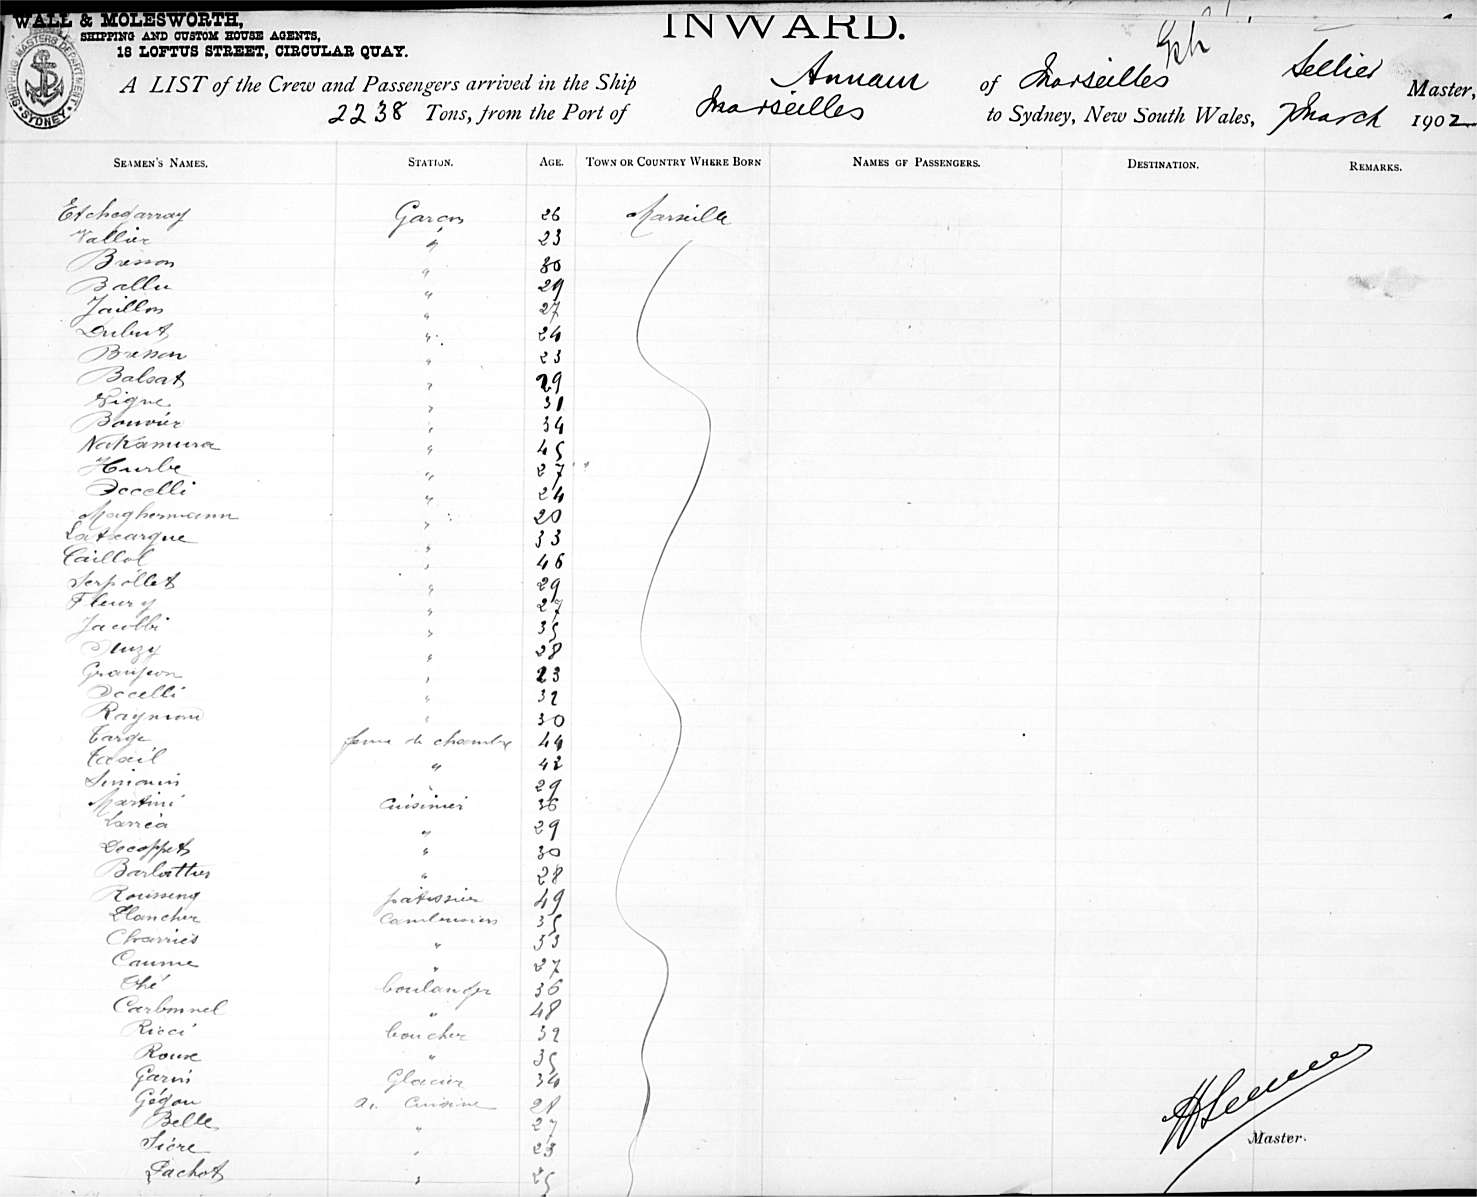 WALL & MOLESWORTH,
SHIPPING AND CUSTOM HOUSE AGENTS,
18 LOFTUS STREET, CIRCULAR QUAY.
SHIPPING MASTERS DEPARTMENT SYDNEY
INWARD.
A LIST of the Crew and Passengers arrived in the Ship Annam of Marseilles Sellier Master,
2238 Tons, from the Port of Marseilles to Sydney, New South Wales, 7 March 1902
SEAMEN'S NAMES. STATION. AGE. TOWN OR COUNTRY WHERE BORN NAMES OF PASSENGERS. DESTINATION. REMARKS.
Etchegarray Garçon 26 Marseille
Vallier " 23
Bresson " 30
Ballu " 29
Jaillon " 27
Dubut " 24
Bresson " 23
Balsat " 29
Vigne " 31
Bouvier " 34
Nakamura " 45
Hurbe " 27
Occelli " 24
Maghermann " 20
Latxargue " 33
Caillol " 46
Serpollet " 29
Fleury " 27
Jacobbi " 35
" 28
Granjeon " 23
Occelli " 32
Raymond " 30
Targe feme de chambre 44
" 42
Simonin " 29
Martini cuisinier 36
Larréa " 29
Decoppet " 30
" 28
pâtissier 49
Plancher cambusiers 35
Charriès " 33
Caume " 27
boulanger 36
Carbonnel " 48
Ricci boucher 32
Roux " 35
Garin Glacier 34
Gégou a. cuisine 28
Belle " 27
" 23
Pachot " 25
Master.